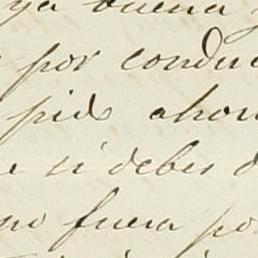 ya buena
por condu
pide ahor
si debes
no fuera po